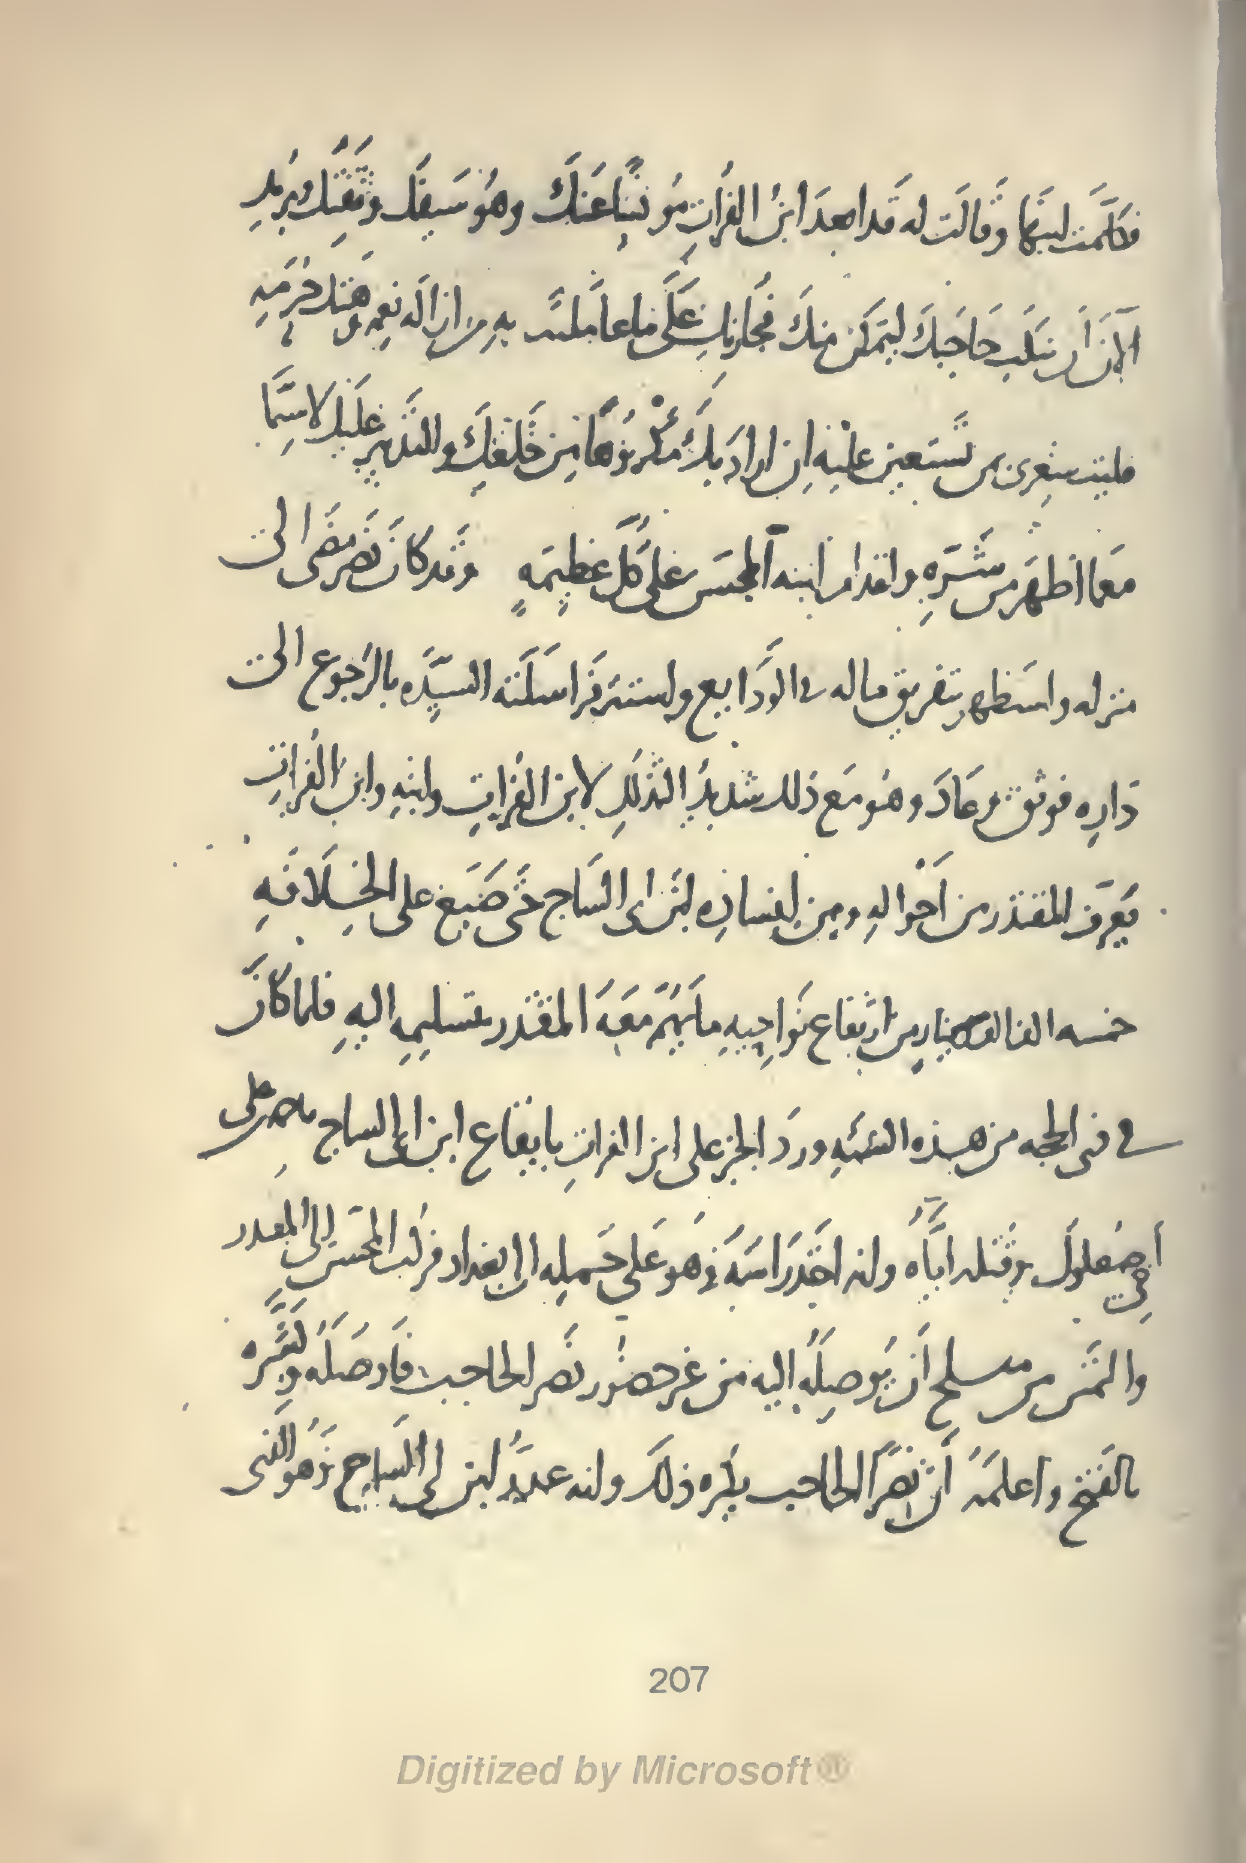 فكلّمت ابنها وقالت له قد ابعد ابنُ الفرات مونسًا عنك وهو سيفك وثقتك ويريد
الآن أن ينكب حاجبك ليتمكن منك فيجازيك على ما عاملته به من ازاله نعمه وهتك حرمه
فليت شعري بمن تستعين عليه ان اراد بك مكروهًا من خلعك والتدبير عليك لا سيّما
مع ما اظهر من شرّه واقدام ابنه المحسن على كل عظيمه وقد كان نصر مضى الى
منزله واستظهر بتفريق ماله في الودايع واستتر فراسلته السيّده بالرجوع الى
داره فوثق وعاد وهو مع ذلك شديد التذلل لابن الفرات وابنه وابن الفرات
يعرف المقتدر من أحواله ومن افساده ابن ابي الساج حتى ضيع على الخلافه
خمسه الف الف دينار من ارتفاع نواحيه ما يهمّ معه المقتدر بتسليمه اليه فلما كان
في ذى الحجه من هذه السنه ورد الخبر على ابن الفرات بايقاع ابن ابي الساج باحمد بن على
أخي صعلوك وقتله اياه وانه اخذ راسه وهو على حمله الى بغداد فركب المحسن الى المقتدر
والتمس من مفلح أن يوصله اليه من غير حضور نصر الحاجب فاوصله وبشّره
بالفتح واعلمه أن نصرًا الحاجب يكره ذلك وانه عدوّ لابن ابي الساج وهو الذى
207
Digitized by Microsoft®